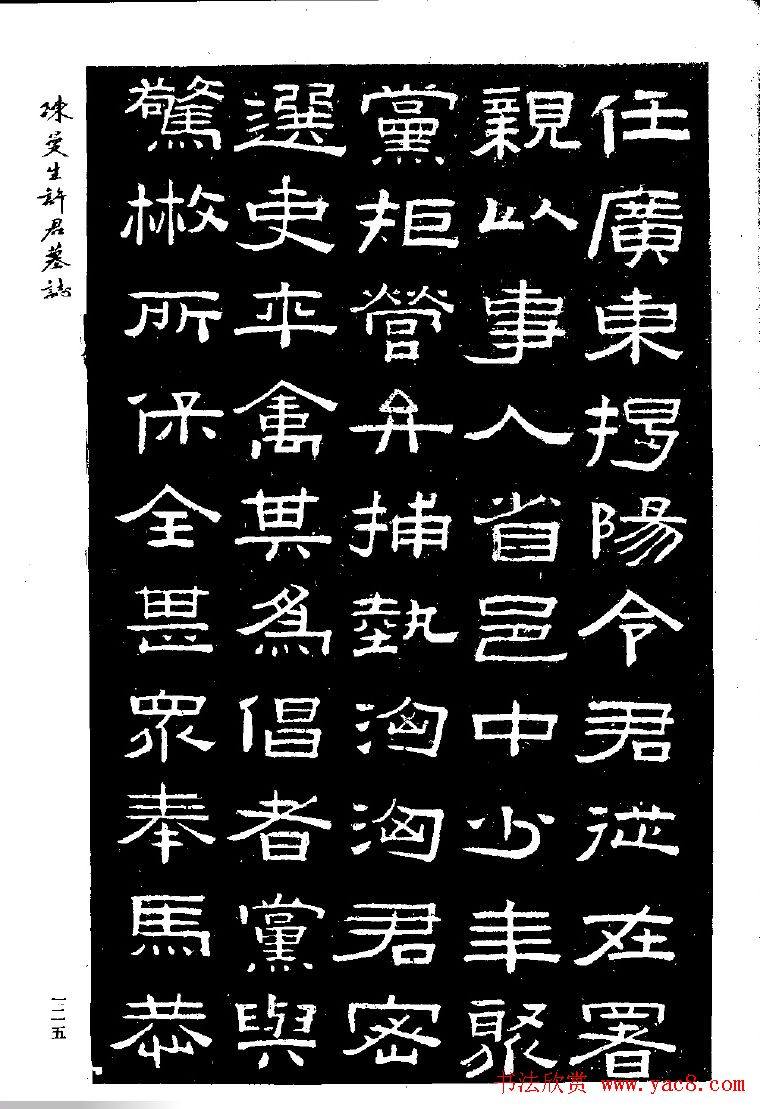 任廣東揭陽令君從在署
親以事入省邑中少年聚
黨拒營弁捕埶洶洶君密
選吏卒禽其為倡者黨與
驚散所保全甚眾奉馬恭
陳曼生許君墓誌
一二五
书法欣赏 www.yac8.com